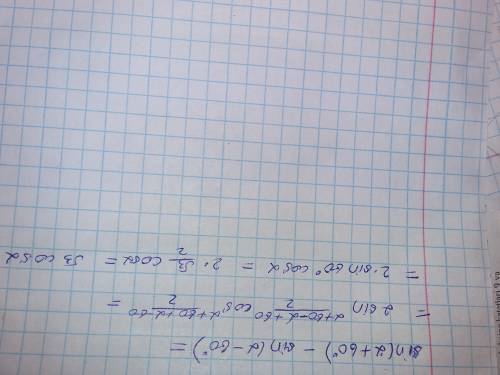 sin(α+60°) − sin(α−60°) =
= 2 sin (α+60−α+60)/2 cos (α+60+α−60)/2 =
= 2·sin 60° cos α = 2·√3/2 cosα = √3 cosα